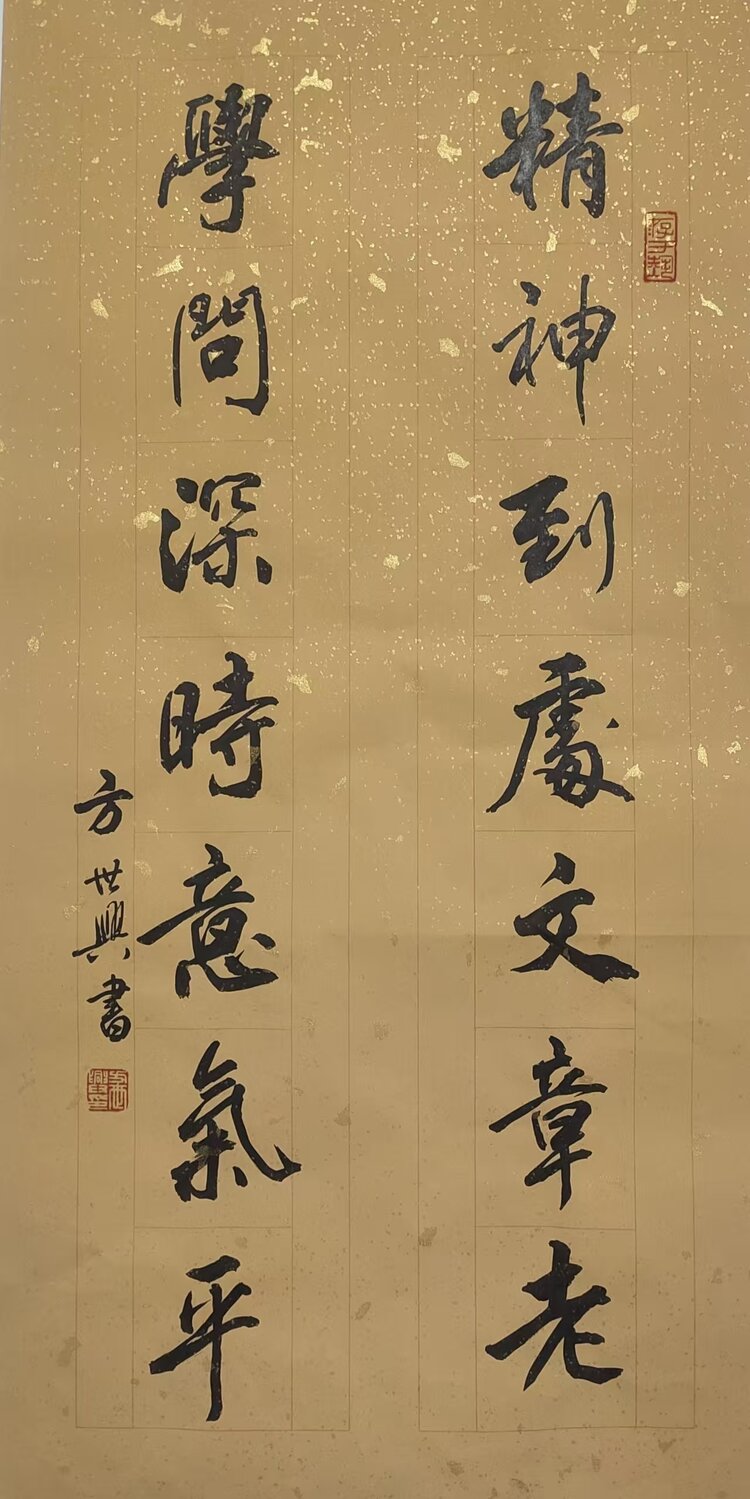 精神到處文章老
學問深時意氣平
方世興書